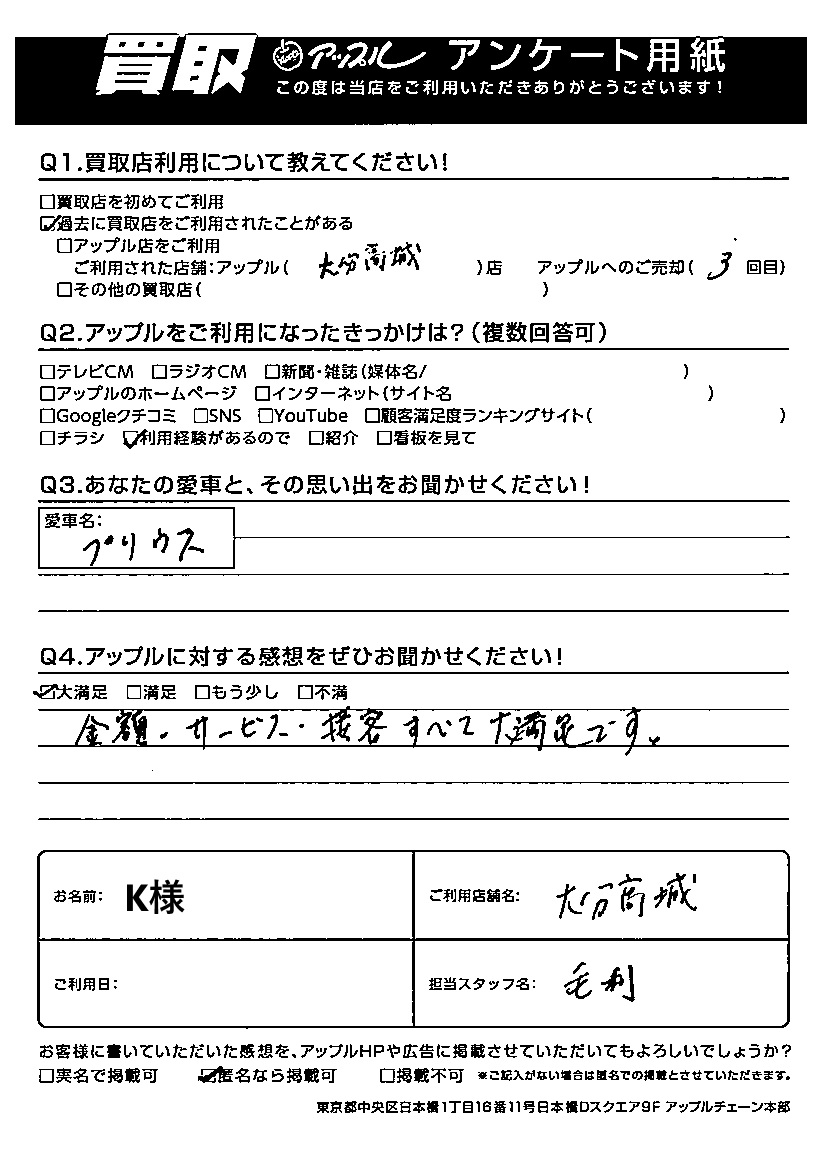 買取 アップル アンケート用紙
この度は当店をご利用いただきありがとうございます!
Q1.買取店利用について教えてください!
□買取店を初めてご利用
☑過去に買取店をご利用されたことがある
□アップル店をご利用
ご利用された店舗:アップル( 大分高城 )店 アップルへのご売却( 3 回目)
□その他の買取店( )
Q2.アップルをご利用になったきっかけは?(複数回答可)
□テレビCM □ラジオCM □新聞・雑誌(媒体名/ )
□アップルのホームページ □インターネット(サイト名 )
□Googleクチコミ □SNS □YouTube □顧客満足度ランキングサイト( )
□チラシ ☑利用経験があるので □紹介 □看板を見て
Q3.あなたの愛車と、その思い出をお聞かせください!
愛車名:
プリウス
Q4.アップルに対する感想をぜひお聞かせください!
☑大満足 □満足 □もう少し □不満
金額・サービス・接客すべて大満足です。
お名前: K様 ご利用店舗名: 大分高城
ご利用日: 担当スタッフ名: 毛利
お客様に書いていただいた感想を、アップルHPや広告に掲載させていただいてもよろしいでしょうか?
□実名で掲載可 ☑匿名なら掲載可 □掲載不可 ※ご記入がない場合は匿名での掲載とさせていただきます。
東京都中央区日本橋1丁目16番11号日本橋Dスクエア9F アップルチェーン本部